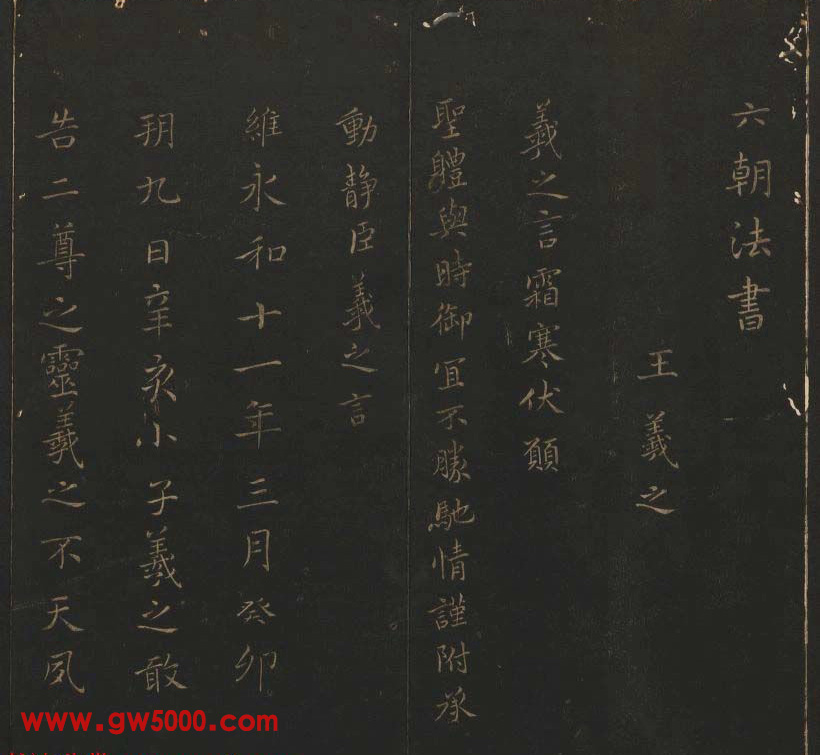 六朝法書
王羲之
羲之言霜寒伏願
聖體與時御宜不勝馳情謹附承
動靜臣羲之言
維永和十一年三月癸卯
朔九日辛亥小子羲之敢
告二尊之靈羲之不天夙
www.gw5000.com